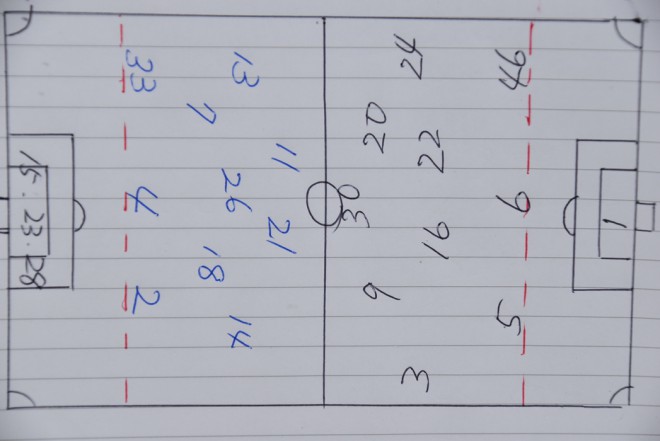 15. 23. 28
33 4 2
7
26
18
13
14
11
21
30
20
9
24
22
16
3
94
6
5
1